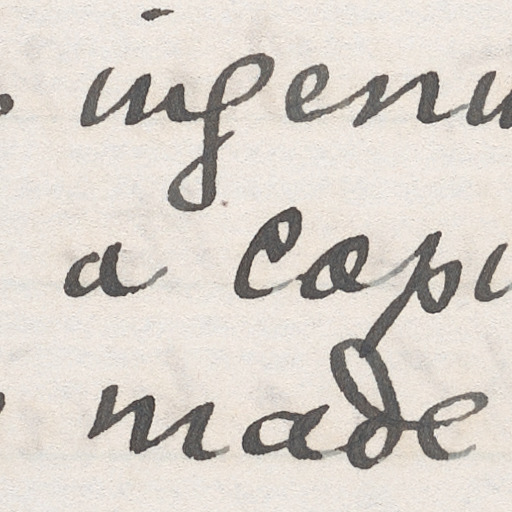 ingenu
a copi
made